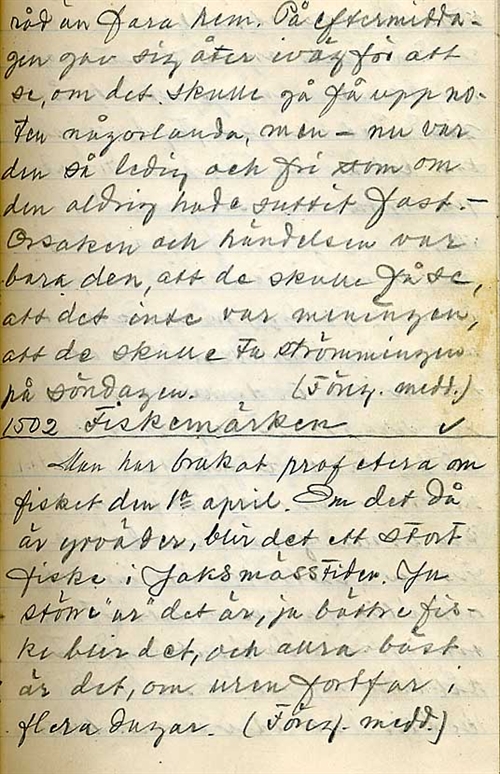 råd än fara hem. På eftermidda-
gen gav sig åter iväg för att
se, om det skulle gå få upp no-
ten någorlunda, men – nu var
den så ledig och fri som om
den aldrig hade suttit fast. –
Orsaken och händelsen var
bara den, att de skulle få se,
att det inte var meningen,
att de skulle ta strömmingen
på söndagen. (Föreg. medd.)
1502 Fiskemärken ✓
Man har brukat profetera om
fisket den 1a april. Om det då
är yrväder, blir det ett stort
fiske i Jaksmässtiden. Ju
större "ur" det är, ju bättre fis-
ke blir det, och allra bäst
är det, om uren fortfar i
flera dagar. (Föreg. medd.)